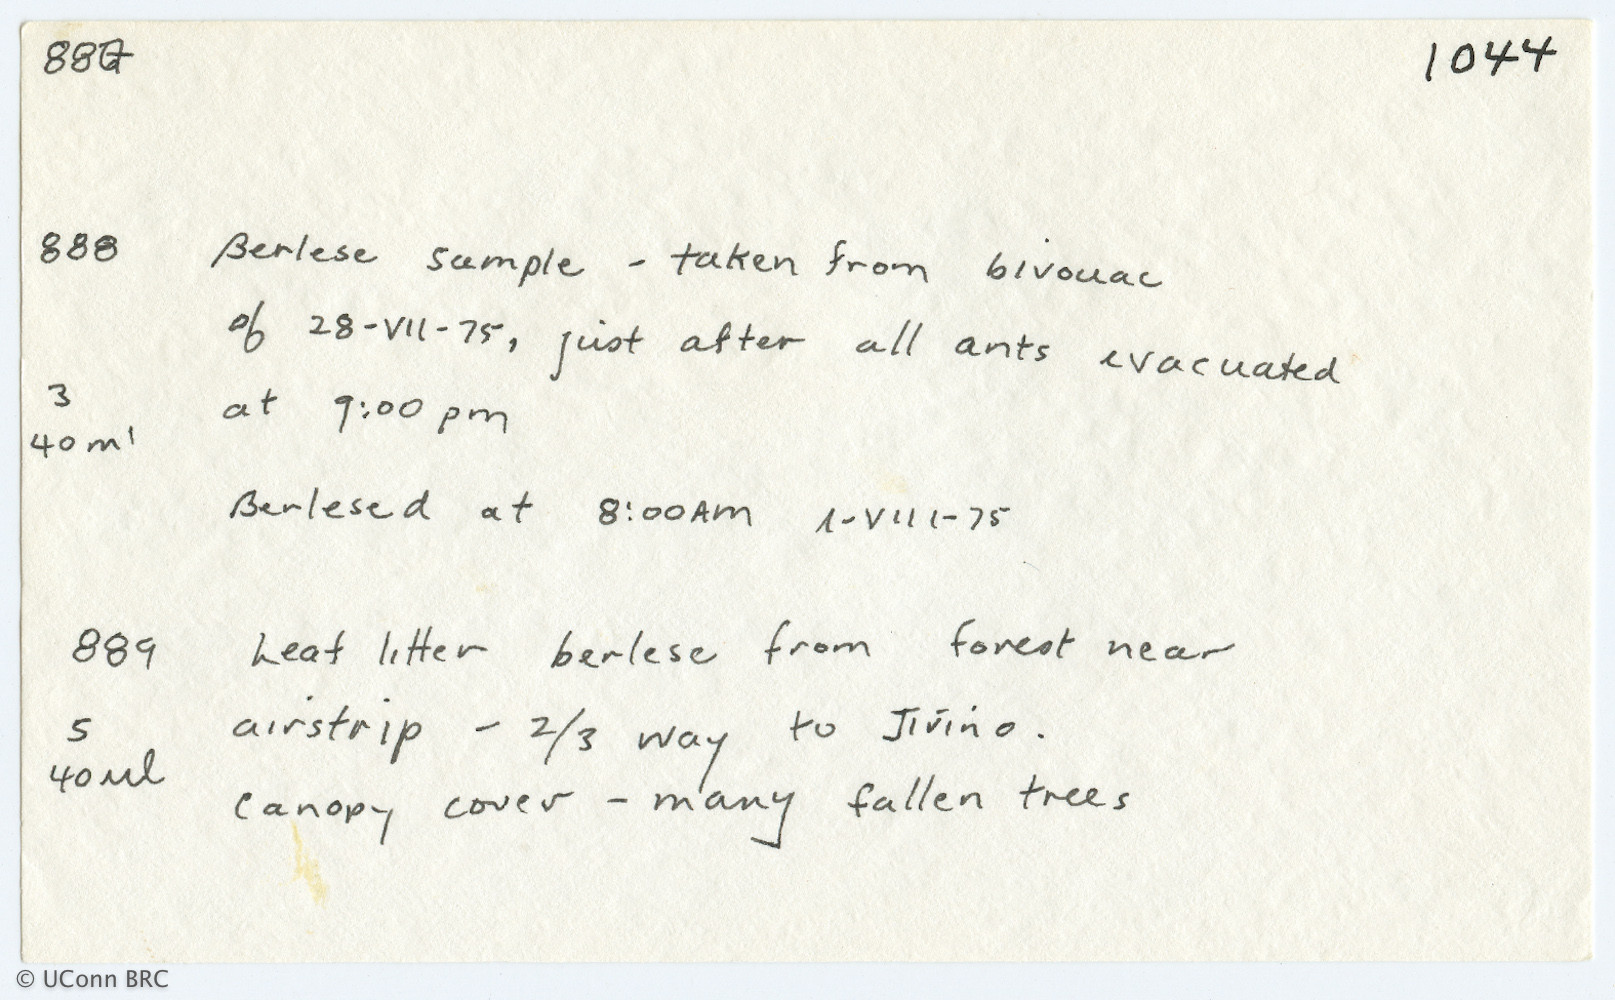 887
1044
888 Berlese sample - taken from bivouac
of 28-VII-75, just after all ants evacuated
3
at 9:00 pm
40 ml
Berlesed at 8:00 AM 1-VIII-75
889 Leaf litter berlese from forest near
5 airstrip - 2/3 way to Jivino.
40 ml
canopy cover - many fallen trees
© UConn BRC